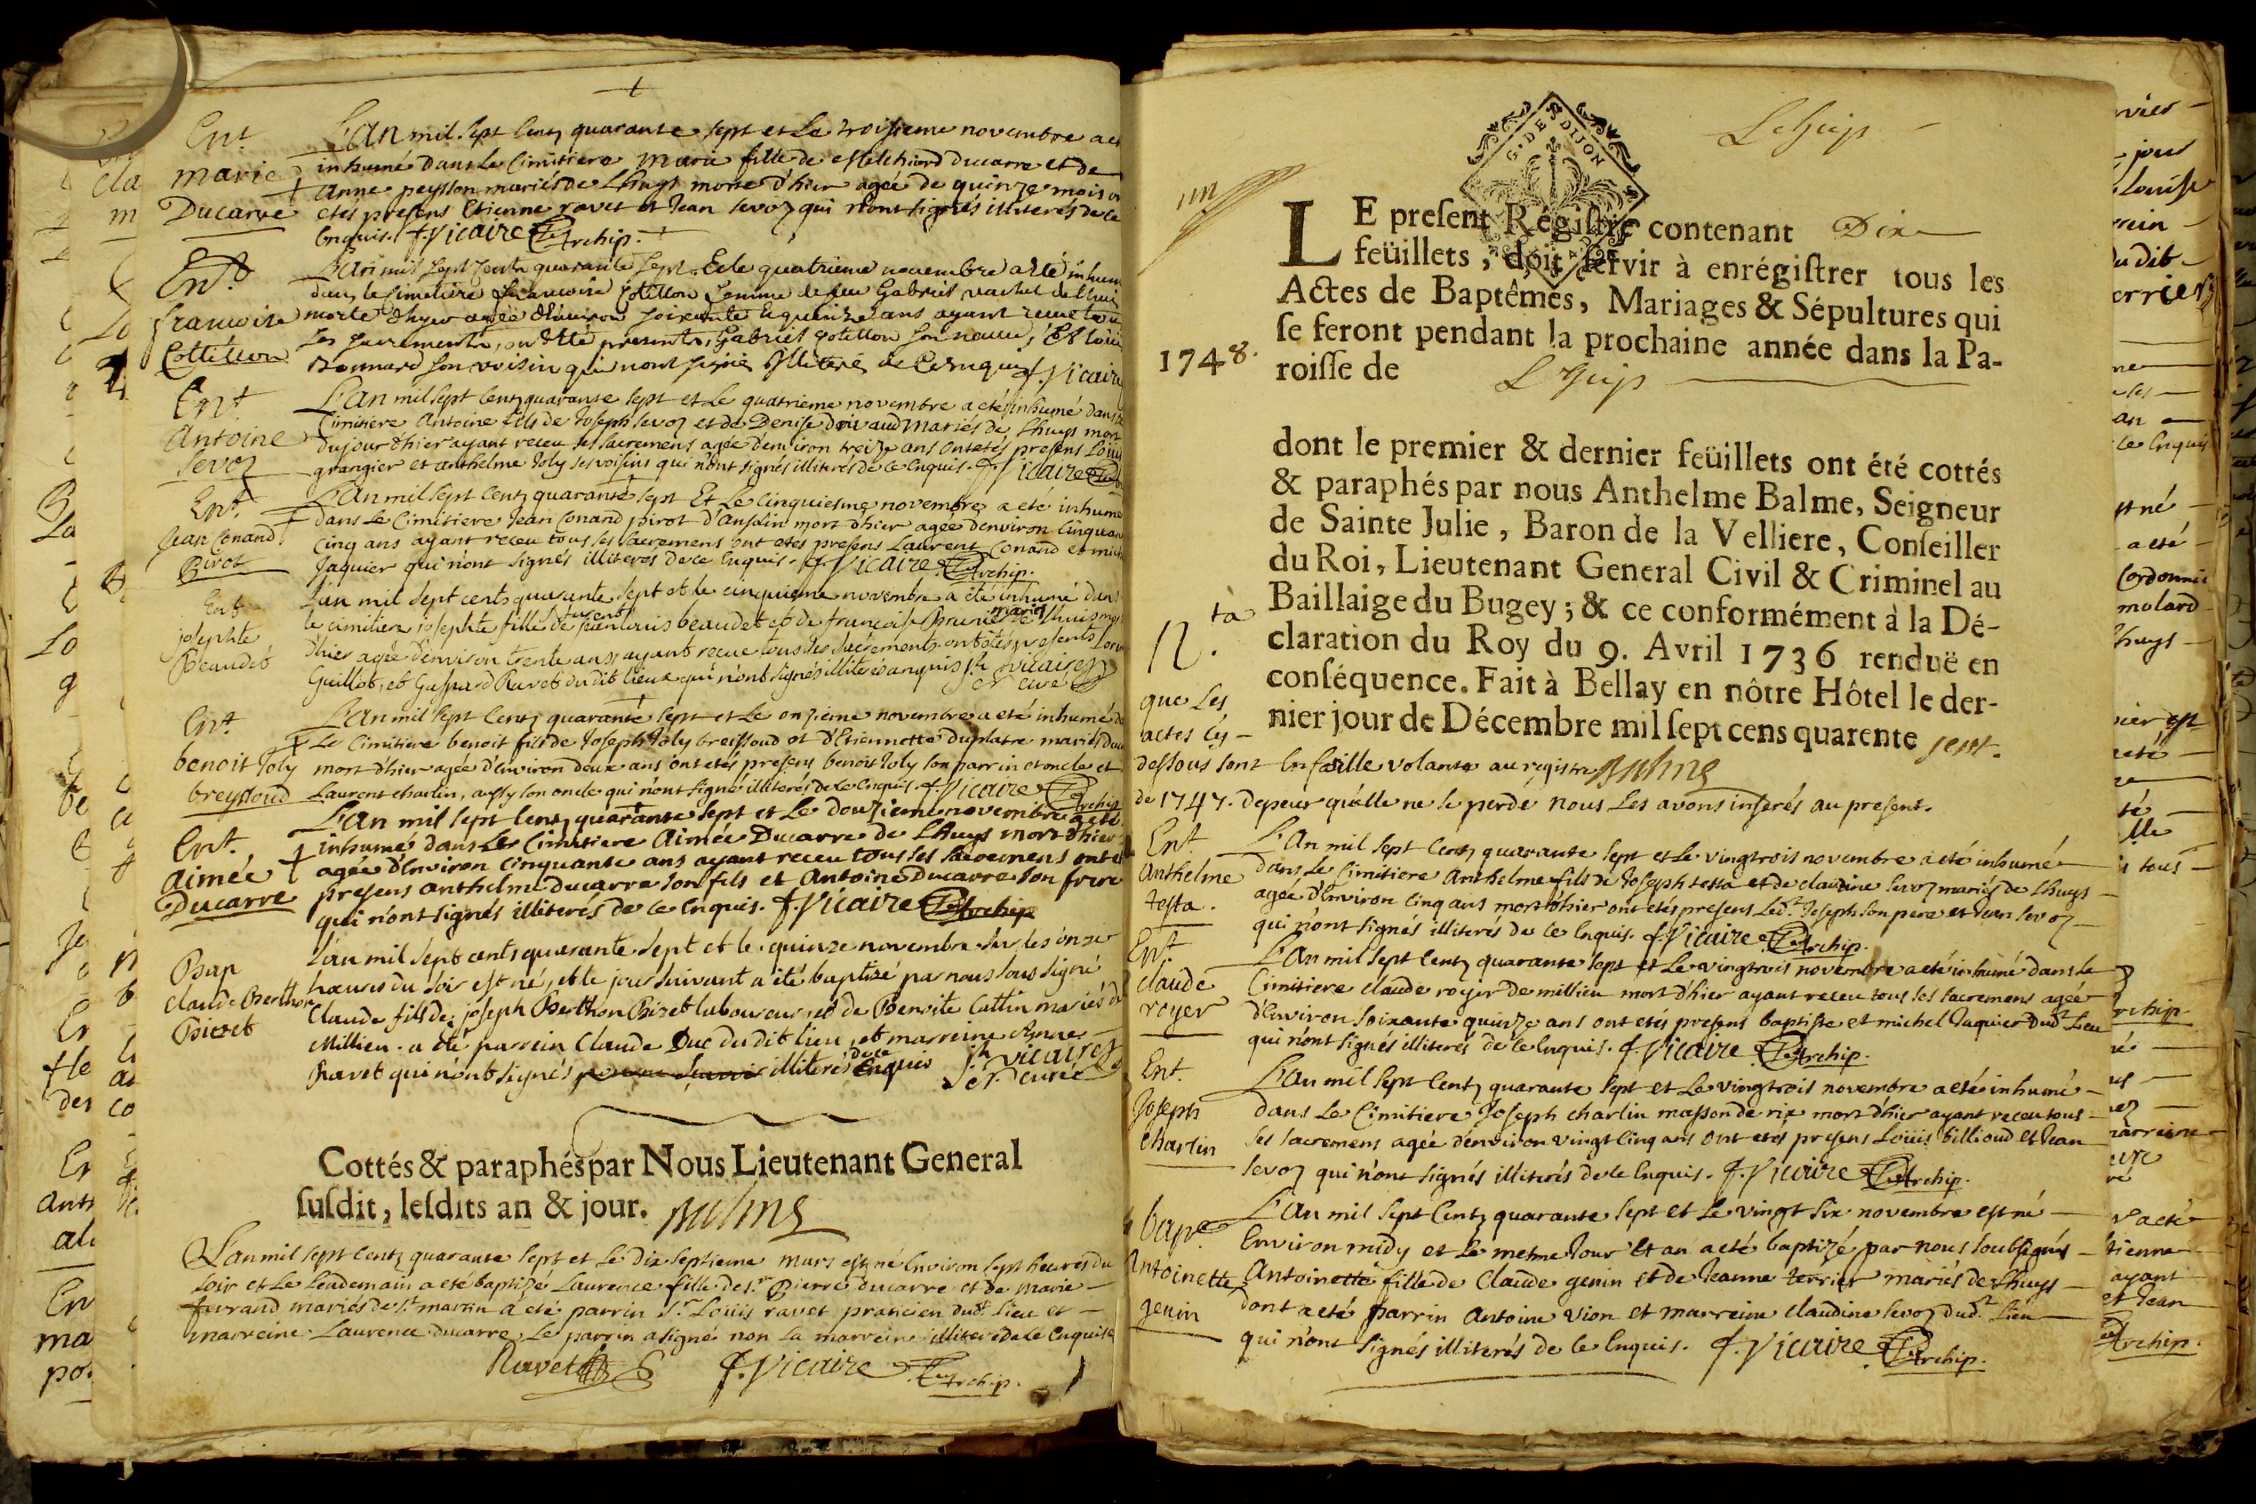 Ent.
marie
Ducarre
L'an mil sept Centz quarante sept et Le troisieme novembre a eté
inhumé dans Le Cimitiere marie fille de Melchiord ducarre et de
anne peysson mariés de Lhuys morte d'hier agée de quinze mois ont
etés presens Etienne ravet et Jean Sevoz qui n'ont signés illiterés de ce
Enquis. f. Vicaire Archip.
Ent.
francoise
Cottillion
L'an mil sept Cents quarante sept Et le quatrieme novembre a été inhum
dans le cimetiere francoise Cotillon femme de feu Gabriel vachet de Lhuis
morte d'hyer agée d'environ soixante et quinze ans ayant receu tous
les sacrements, ont été presents, Gabriel Cotillon son neveu, Et Louis
Bonnard son voisin qui n'ont signé illiterés de ce enquis f. Vicaire
Ent.
Antoine
Sevoz
L'An mil sept Centz quarante sept et Le quatrieme novembre a eté inhumé dans le
Cimitiere Antoine fils de Joseph Sevoz et de Denise mariés de Lhuys mort
du jour d'hier ayant receu les sacremens agée d'environ treize ans ont etés presens Louis
grangier et anthelme Joly ses voisins qui n'ont signés illiterés de ce Enquis. f. Vicaire
Ent.
Jean Conand
Pirot
L'An mil sept Centz quarante sept Et Le Cinquiesme novembre a eté inhumé
dans Le Cimitiere Jean Conand pirot d'Ansolin mort d'hier agée d'environ Cinquante
cinq ans ayant receu tous les sacremens ont etés presens Laurent Conand et mich
Jaquier qui n'ont signés illiterés de ce Enquis. f. Vicaire Archip.
Ent
josephte
Beaudet
L'an mil sept cents quarante sept et le cinquieme novembre a été inhumé dans
le cimitiere josephte fille de jean louis beaudet et de francoise Brunet mariés de Lhuis morte
d'hier agée d'environ trente ans ayant receue tous les sacrements ont etés presents
Guillot, et Gaspard Ravet du dit lieux qui n'ont signés illiterés enquis f. Vicaire
et curé
Ent.
benoit Joly
breyssoud
L'An mil sept Centz quarante sept et Le onzieme novembre a eté inhumé dans
Le Cimitiere benoit fils de Joseph Joly breissoud et d'Etiennette Duplatre mariés
mort d'hier agée d'Environ deux ans ont etés presens benoit Joly son parrin et oncle et
Laurent charlin, aussy son oncle qui n'ont signé illiterés de ce Enquis. f. Vicaire Archip
Ent.
Aimée
Ducarre
L'An mil sept Centz quarante sept et Le douzieme novembre a eté
inhumé dans Le Cimitiere Aimée Ducarre de Lhuys mort d'hier
agée d'Environ Cinquante ans ayant receu tous les sacremens ont etés
presens anthelme Ducarre son fils et Antoine Ducarre son frere
qui n'ont signés illiterés de ce Enquis. f. Vicaire Archip
Bap
Claude Berthon
Bizet
L'an mil sept cents quarante sept et le quinze novembre sur les onze
heures du soir est né, et le jour suivant a été baptizé par nous sous signé
Claude fils de joseph Berthon Bizet laboureur et de Benoite Cattin mariés de
Millieu. a été parrein Claude Duc du dit lieu, et marreine Anne
Ravet qui n'ont signés illiterés de ce Enquis f. Vicaire
et curé
Cottés & paraphés par Nous Lieutenant General
susdit, lesdits an & jour. Balme
L'an mil sept Centz quarante sept et Le Dix septieme mars est né Environ sept heures du
soir et Le Lendemain a eté baptizé Laurence fille de sr. Pierre ducarre et de marie
ferrand mariés de st. martin a eté parrin sr. Louis ravet praticien dud. Lieu et
marreine Laurence ducarre, Le parrin a signé non La marreine illiterée de ce Enquise
Ravet f. Vicaire Archip.
G. DE DIJON
Lhuys
1748.
LE present Régistre contenant Dix
feüillets, doit servir à enrégistrer tous les
Actes de Baptêmes, Mariages & Sépultures qui
se feront pendant la prochaine année dans la Pa-
roisse de Lhuys
dont le premier & dernier feüillets ont été cottés
& paraphés par nous Anthelme Balme, Seigneur
de Sainte Julie, Baron de la Velliere, Conseiller
du Roi, Lieutenant General Civil & Criminel au
Baillaige du Bugey; & ce conformément à la Dé-
claration du Roy du 9. Avril 1736 renduë en
conséquence. Fait à Bellay en nôtre Hôtel le der-
nier jour de Décembre mil sept cens quarente sept.
Balme
N.ta
que Les
actes cy
dessous sont En feuille volante au registre
de 1747. de peur qu'elle ne se perde nous Les avons inserés au present.
Ent
Anthelme
testa.
L'An mil sept Centz quarante sept et Le vingtrois novembre a eté inhumé
dans Le Cimitiere Anthelme fils de Joseph testa et de claudine Sevoz mariés de Lhuys
agée d'Environ Cinq ans mort d'hier ont etés presens Led.t Joseph son pere et Jean Sevoz
qui n'ont signés illiterés de ce Enquis. f. Vicaire Archip.
Ent.
claude
royer
L'An mil sept Centz quarante sept et Le vingtrois novembre a eté inhumé dans Le
Cimitiere claude royer de millieu mort d'hier ayant receu tous les sacremens agée
d'Environ soixante quinze ans ont etés presens baptiste et michel Jaquier Dud.t Lieu
qui n'ont signés illiterés de ce Enquis. f. Vicaire Archip.
Ent.
Joseph
charlin
L'An mil sept Centz quarante sept et Le vingtrois novembre a eté inhumé
dans Le Cimitiere Joseph charlin masson de rix mort d'hier ayant receu tous
ses sacremens agée d'environ vingt Cinq ans ont etés presens Loüis billioud et Jean
Sevoz qui n'ont signés illiterés de ce Enquis. f. Vicaire Archip.
bap.e
Antoinette
genin
L'An mil sept Centz quarante sept et Le vingt six novembre est né
Environ midy et Le mesme Jour Et an a eté baptizé par nous soubsignés
Antoinette fille de Claude genin et de Jeanne terrier mariés de Lhuys
dont a eté parrin Antoine Vion et marreine claudine Sevoz dud.t Lieu
qui n'ont signés illiterés de ce Enquis. f. Vicaire Archip.